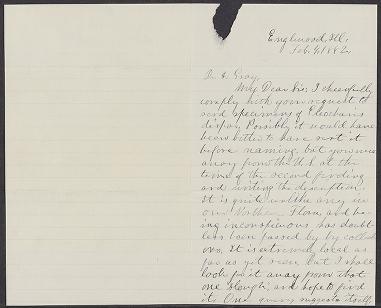 Englewood, Ill.
Feb. 4, 1882.
Dr. A. Gray,
My Dear Sir; I cheerfully
comply with your request to
send specimens of Eleocharis
dispar. Possibly it would have
been better to have sent it
before naming, but you were
away from the U.S. at the
time of the second finding
and writing the description.
It is quite unlike any in
our Northern Flora, and be-
ing inconspicuous has doubt-
less been passed by by collect-
ors. It is extremely local as
far as yet seen, but I shall
look for it away from that
one slough, and hope to find
it. One query suggests itself,